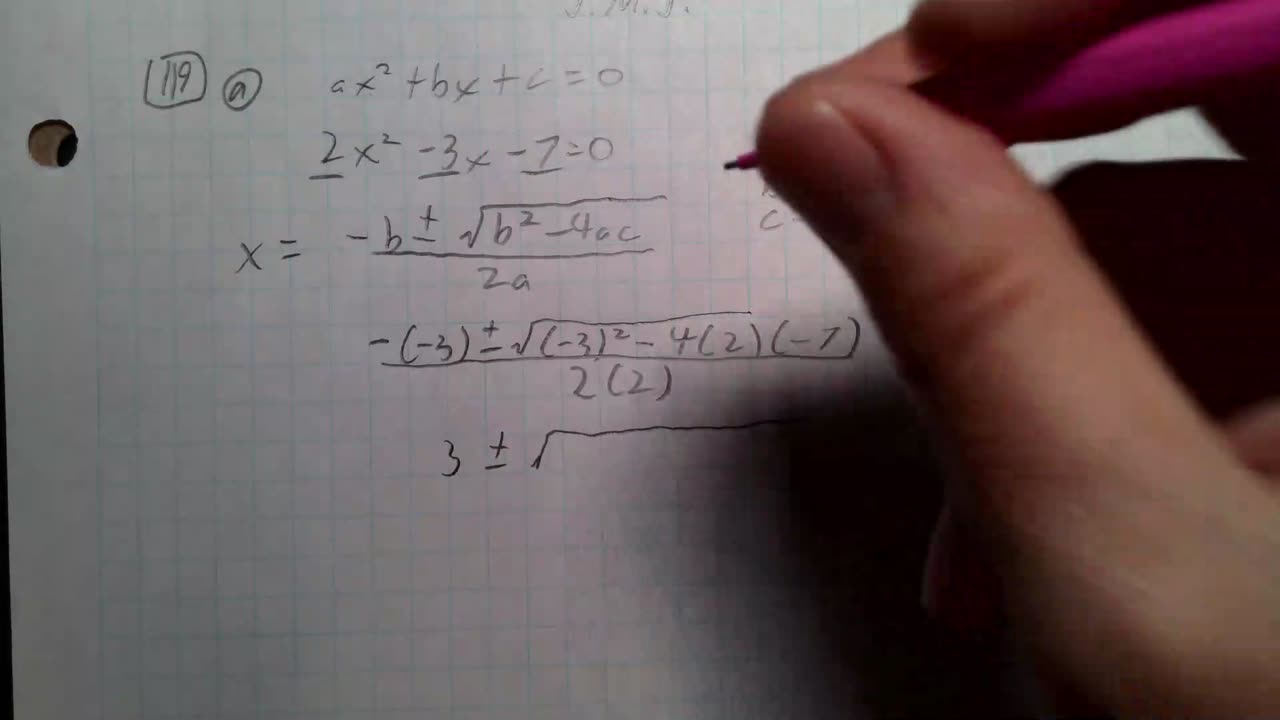 J.M.J.
119 a ax² + bx + c = 0
2x² - 3x - 7 = 0
x = -b ± √(b² - 4ac) / 2a
c =
-(-3) ± √((-3)² - 4(2)(-7)) / 2(2)
3 ± √